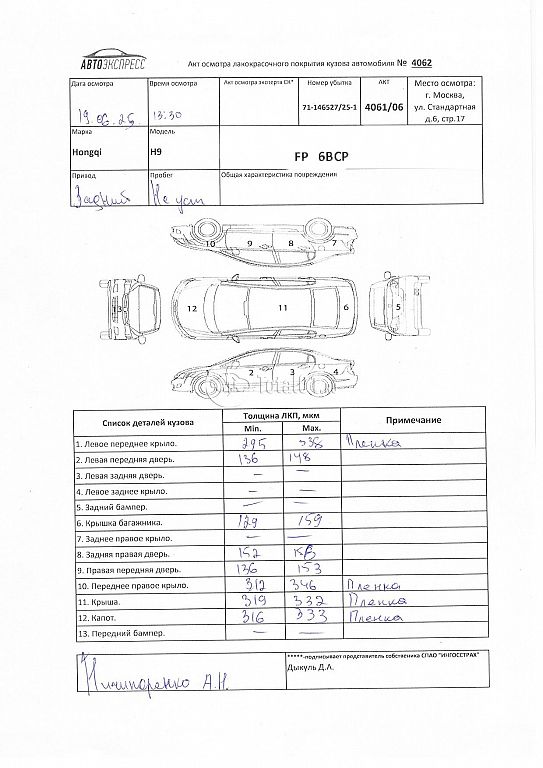 АВТОЭКСПРЕСС
Акт осмотра лакокрасочного покрытия кузова автомобиля № 4062
Дата осмотра Время осмотра Акт осмотра эксперта СК* Номер убытка АКТ Место осмотра:
г. Москва,
ул. Стандартная
д.6, стр.17
19.06.25 13:30 71-146527/25-1 4061/06
Марка Модель
Hongqi H9 FP 6BCP
Привод Пробег Общая характеристика повреждения
Задний Не уст
10 9 8 7
13 12 11 6 5
1 2 3 4
Список деталей кузова Толщина ЛКП, мкм Примечание
Min. Max.
1. Левое переднее крыло. 295 338 Пленка
2. Левая передняя дверь. 136 148
3. Левая задняя дверь. — —
4. Левое заднее крыло. — —
5. Задний бампер. — —
6. Крышка багажника. 129 159
7. Заднее правое крыло. — —
8. Задняя правая дверь. 152
9. Правая передняя дверь. 136 153
10. Переднее правое крыло. 312 346 Пленка
11. Крыша. 319 332 Пленка
12. Капот. 316 333 Пленка
13. Передний бампер. — —
*****-подписывает представитель собственника СПАО "ИНГОССТРАХ"
Дыкуль Д.А.
Ничипоренко А.Н.